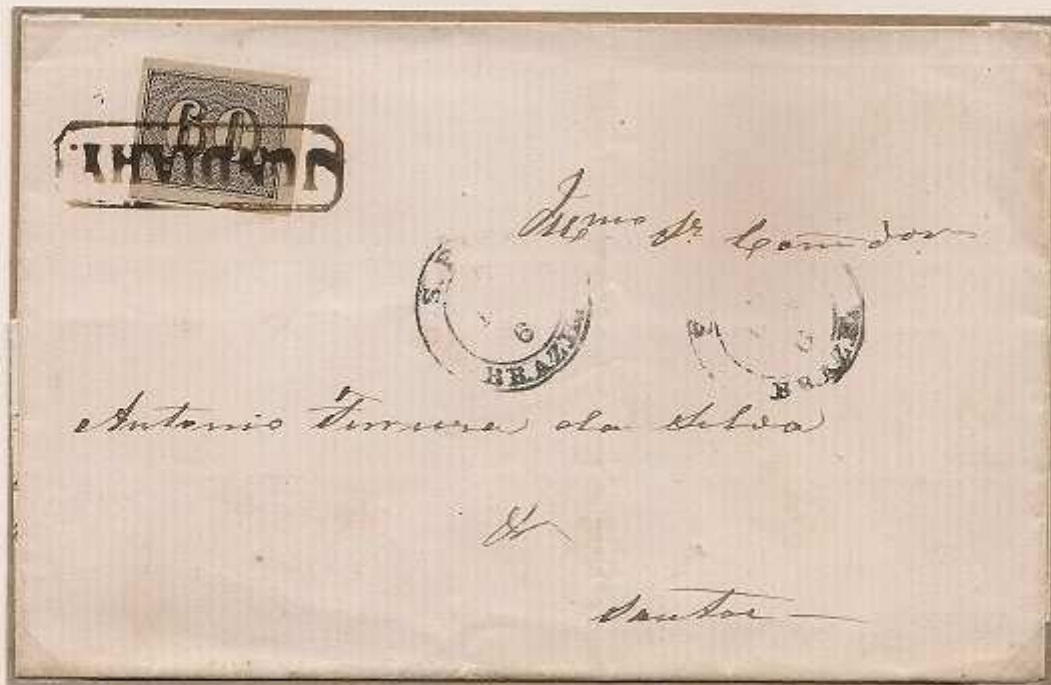 60
JUNDIAHY.
Illmo Sr. Comdor
S. P
6
BRAZIL
6
BRAZI
Antonio Ferreira da Silva
Santos